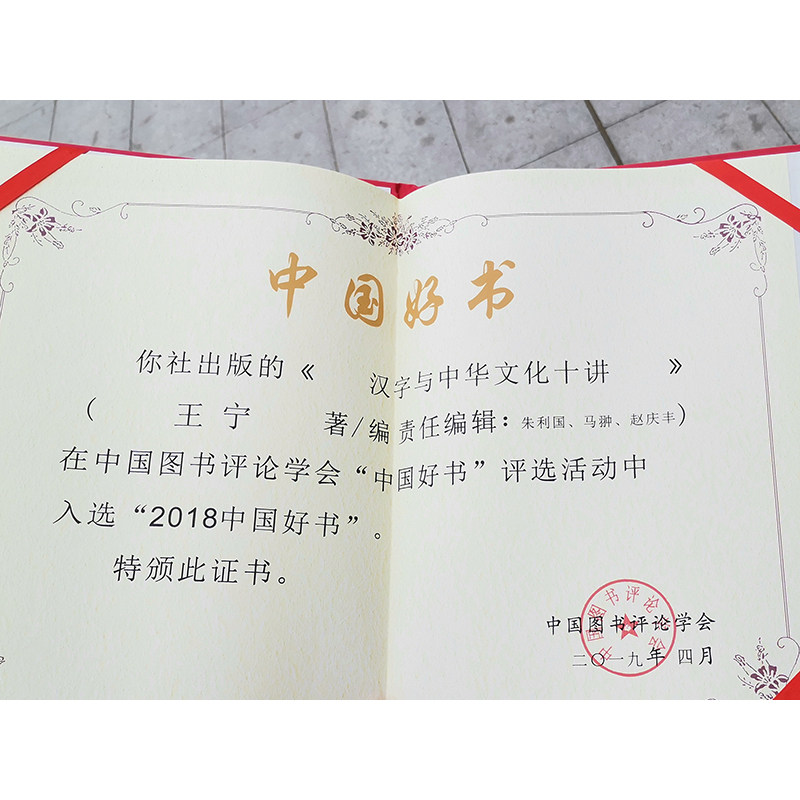 中国好书
你社出版的《 汉字与中华文化十讲 》
( 王宁 著/编 责任编辑：朱利国、马翀、赵庆丰)
在中国图书评论学会“中国好书”评选活动中
入选“2018中国好书”。
特颁此证书。
中国图书评论学会
中国图书评论学会
二〇一九年 四月